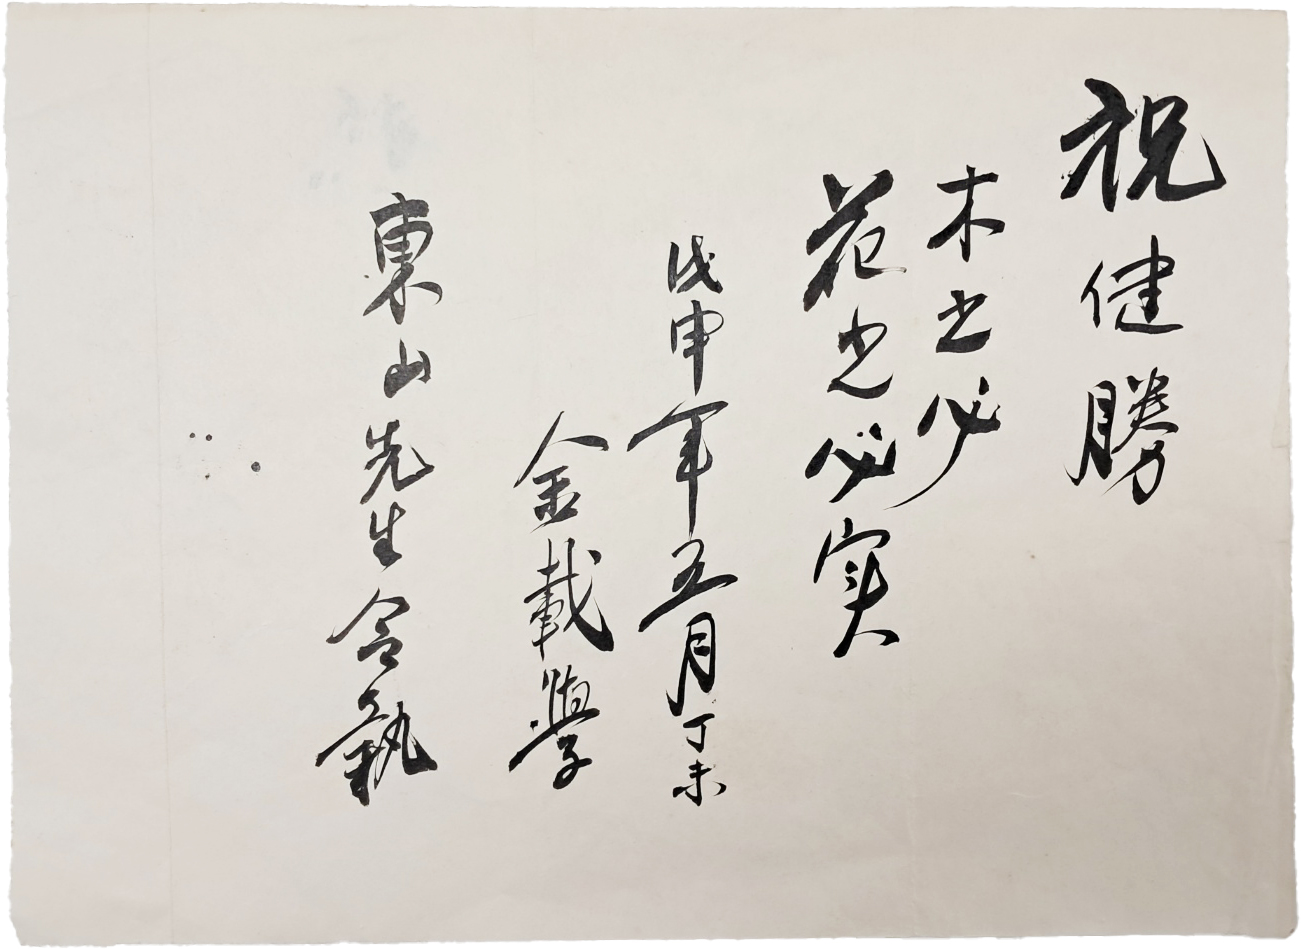 祝健勝
木之必
花之必实
戊申年五月丁未
金載學
東山先生令執